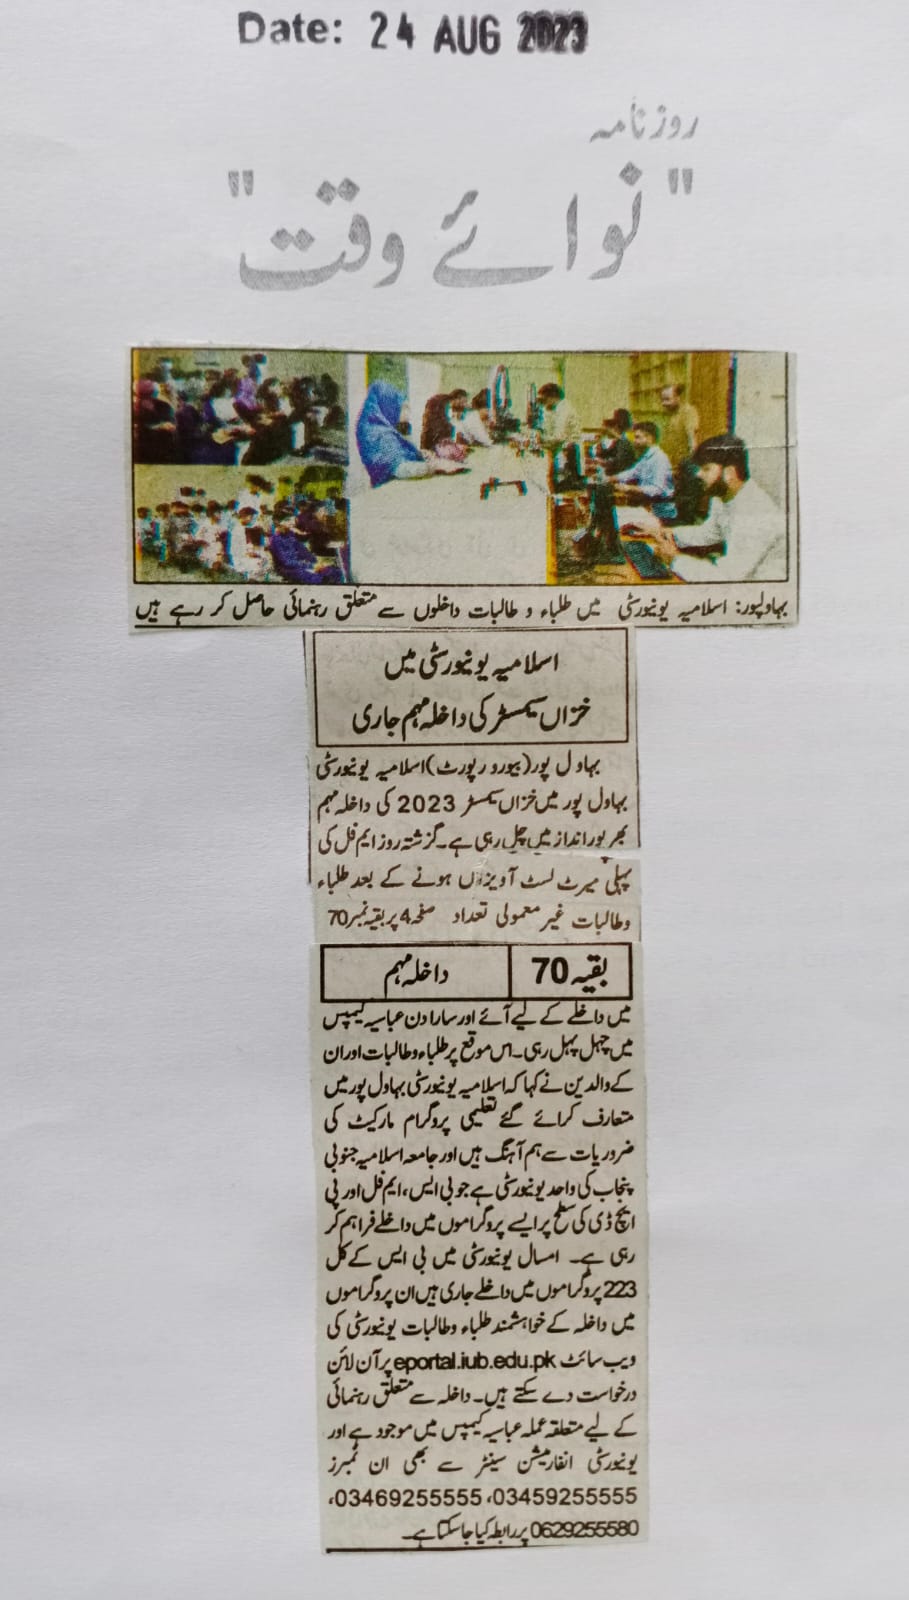 Date: 24 AUG 2023
روزنامہ
"نوائے وقت"
بہاولپور: اسلامیہ یونیورسٹی میں طلباء و طالبات داخلوں سے متعلق رہنمائی حاصل کر رہے ہیں
اسلامیہ یونیورسٹی میں
خزاں سمسٹر کی داخلہ مہم جاری
بہاول پور (بیورو رپورٹ) اسلامیہ یونیورسٹی
بہاول پور میں خزاں سمسٹر 2023 کی داخلہ مہم
بھر پور انداز میں چل رہی ہے۔ گزشتہ روز ایم فل کی
پہلی میرٹ لسٹ آویزاں ہونے کے بعد طلباء
و طالبات غیر معمولی تعداد صفحہ 4 پر بقیہ نمبر 70
بقیہ 70 داخلہ مہم
میں داخلے کے لیے آئے اور سارا دن عباسیہ کیمپس
میں چہل پہل رہی۔ اس موقع پر طلباء و طالبات اور ان
کے والدین نے کہا کہ اسلامیہ یونیورسٹی بہاول پور میں
متعارف کرائے گئے تعلیمی پروگرام مارکیٹ کی
ضروریات سے ہم آہنگ ہیں اور جامعہ اسلامیہ جنوبی
پنجاب کی واحد یونیورسٹی ہے جو بی ایس، ایم فل اور پی
ایچ ڈی کی سطح پر ایسے پروگراموں میں داخلے فراہم کر
رہی ہے۔ امسال یونیورسٹی میں بی ایس کے کل
223 پروگراموں میں داخلے جاری ہیں ان پروگراموں
میں داخلہ کے خواہشمند طلباء و طالبات یونیورسٹی کی
ویب سائٹ eportal.iub.edu.pk پر آن لائن
درخواست دے سکتے ہیں۔ داخلہ سے متعلق رہنمائی
کے لیے متعلقہ عملہ عباسیہ کیمپس میں موجود ہے اور
یونیورسٹی انفارمیشن سینٹر سے بھی ان نمبرز
03459255555، 03469255555،
0629255580 پر رابطہ کیا جا سکتا ہے۔